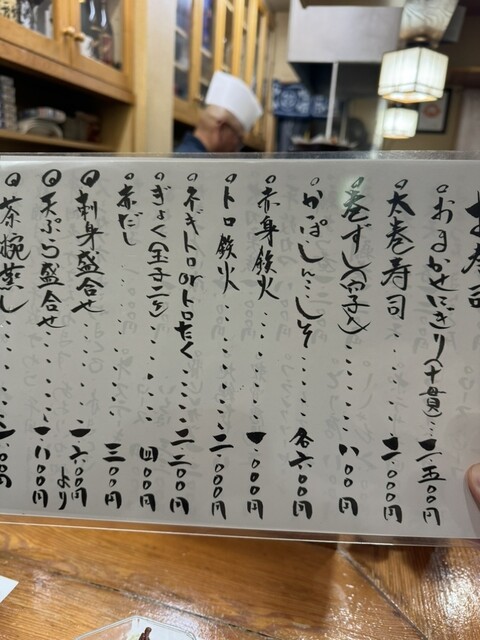 お寿司
○おまかせにぎり(十貫)・・ 五〇〇円
○太巻寿司・・・・ 〇〇〇円
○巻ずし(穴子入)・・・・・・ 八〇〇円
○かっぱ しんこ しそ・・・・・・ 各六〇〇円
○赤身鉄火・・・・・・ 一、〇〇〇円
○トロ鉄火・・・・・・ 二、〇〇〇円
○ネギトロorトロたく・・・・ 二、二〇〇円
○ぎょく(玉子二ケ)・・・・・ 四〇〇円
○赤だし・・・・・・・ 三〇〇円
○刺身盛合せ・・・・・・ 一、六〇〇円より
○天ぷら盛合せ・・・・・ 一、八〇〇円
○茶椀蒸し・・・・・ 〇〇円